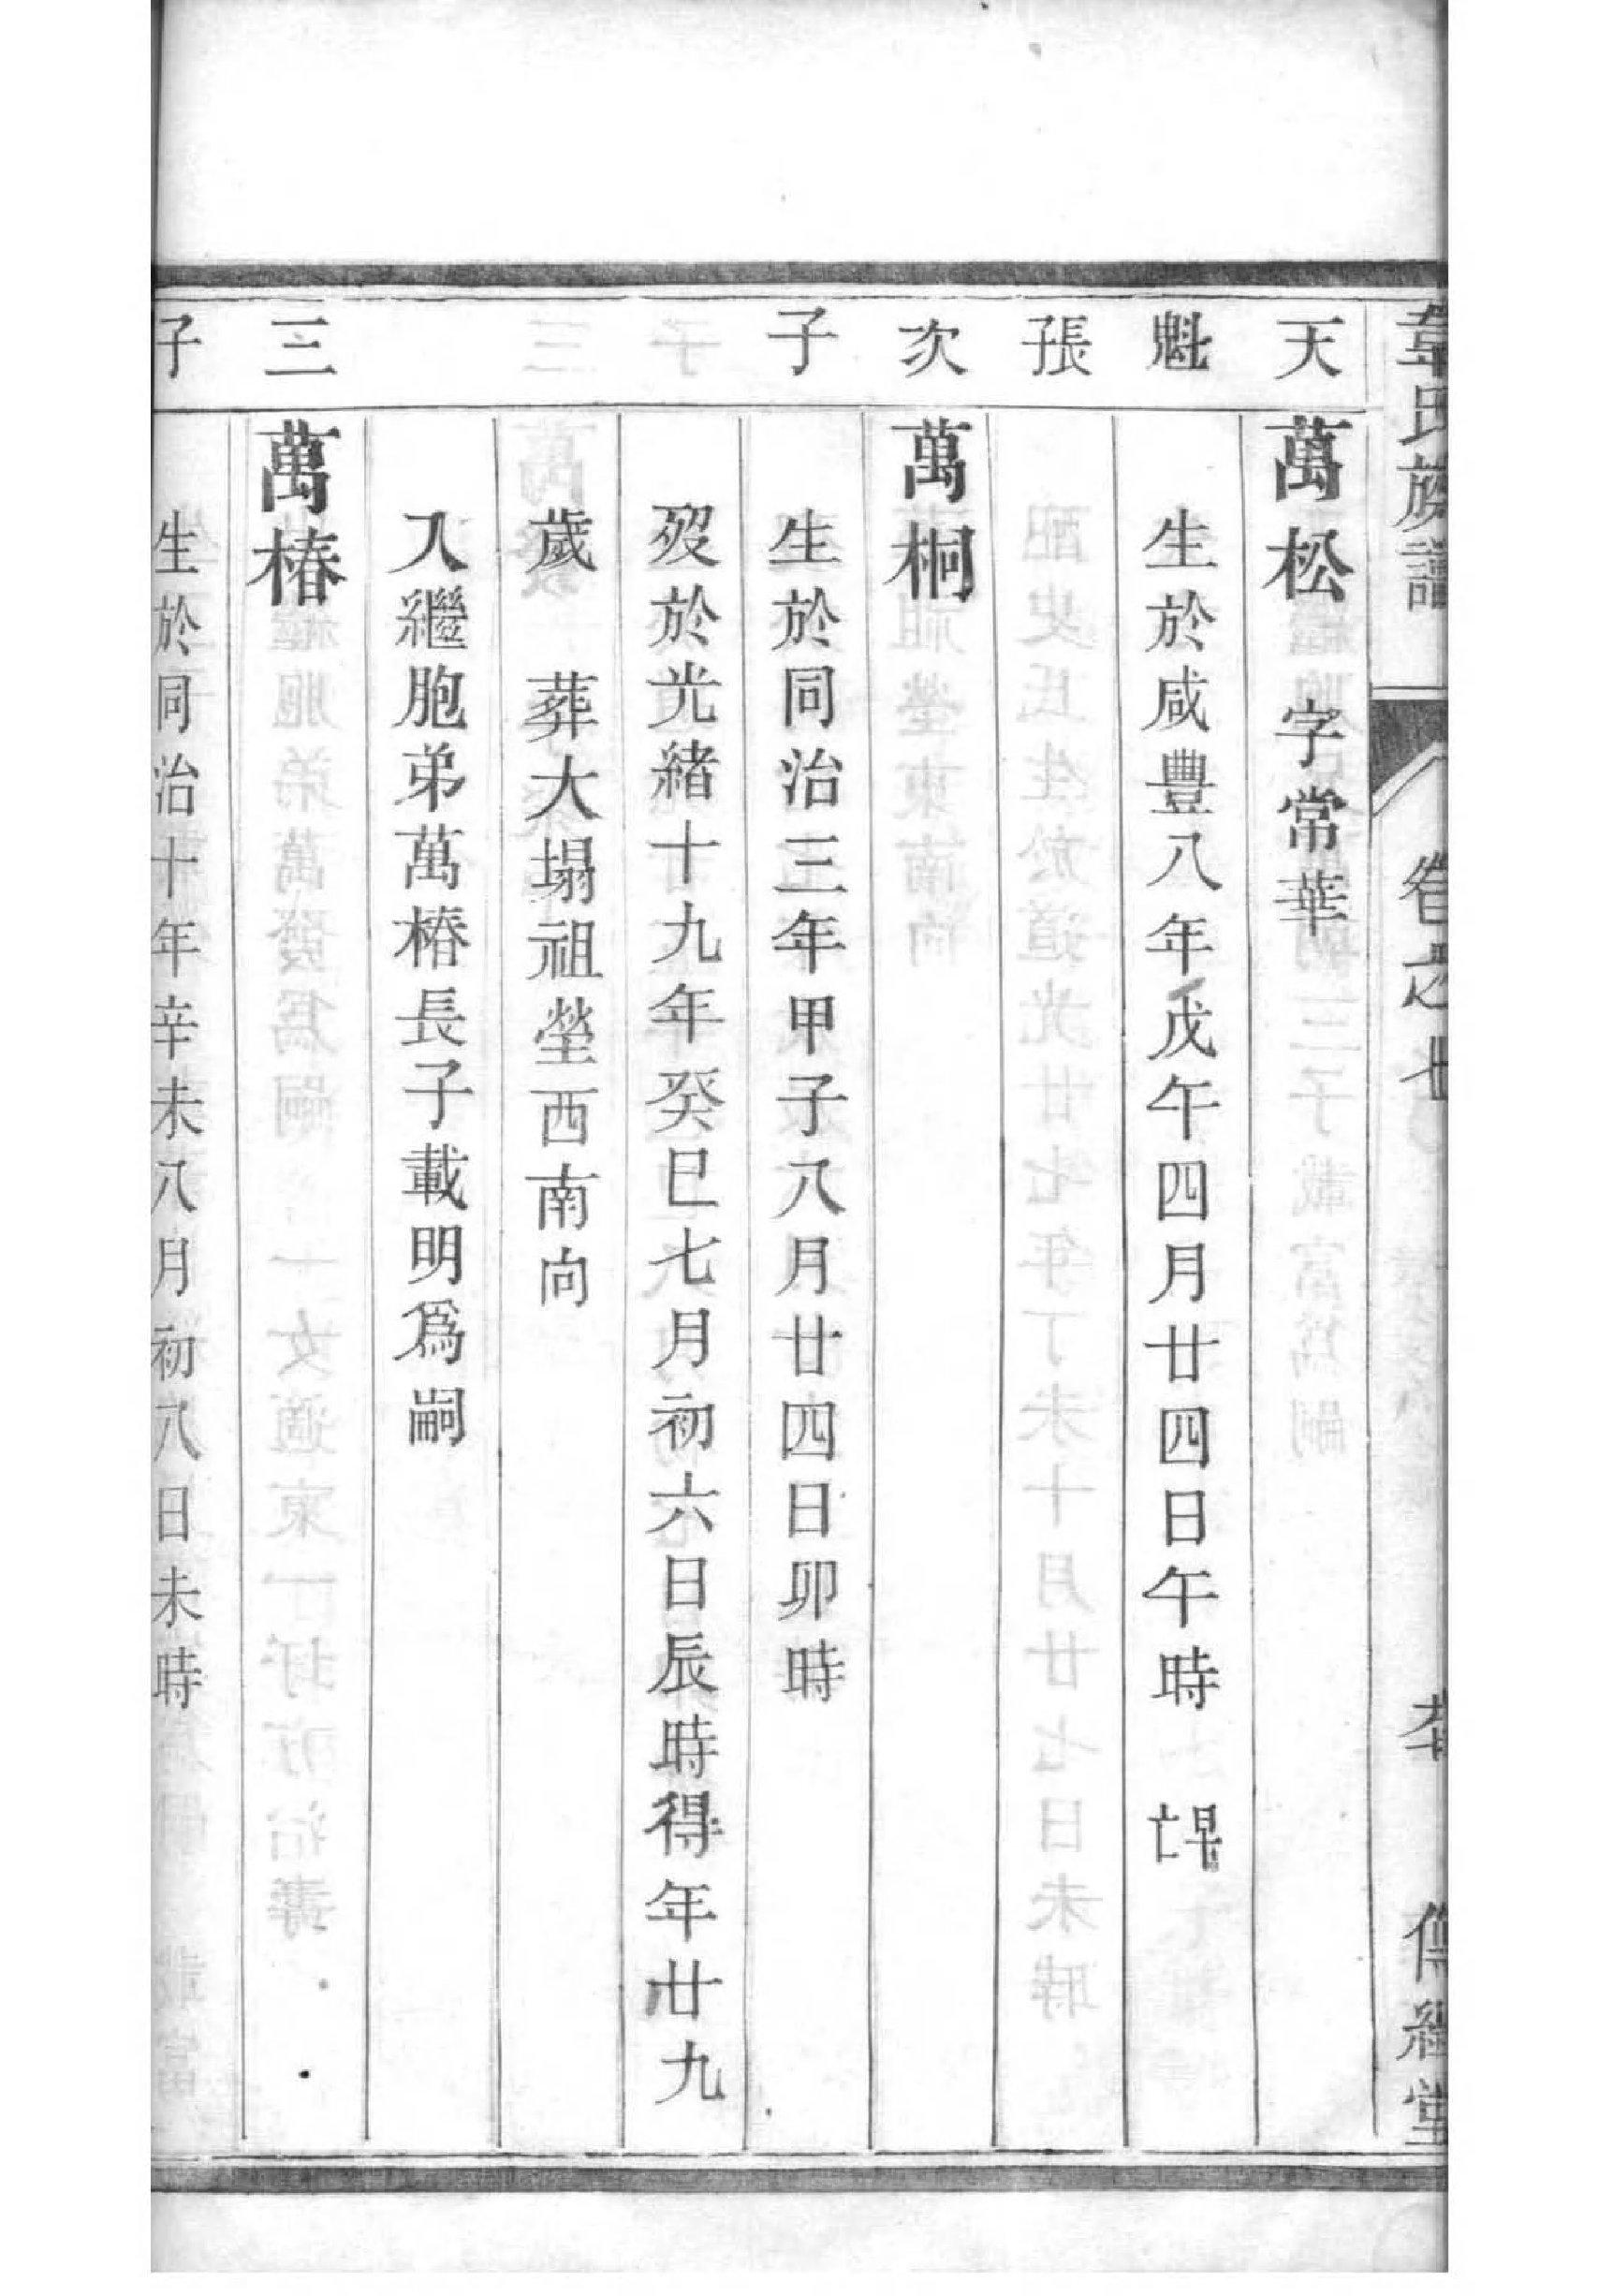 韋氏族譜 卷之七 傳經堂
天魁長子
萬松 字常華
生於咸豐八年戊午四月廿四日午時 早亡
次子
萬桐
生於同治三年甲子八月廿四日卯時
歿於光緒十九年癸巳七月初六日辰時得年廿九
歲 葬大塌祖塋西南向
入繼胞弟萬椿長子載明爲嗣
三子
萬椿
生於同治十年辛未八月初八日未時